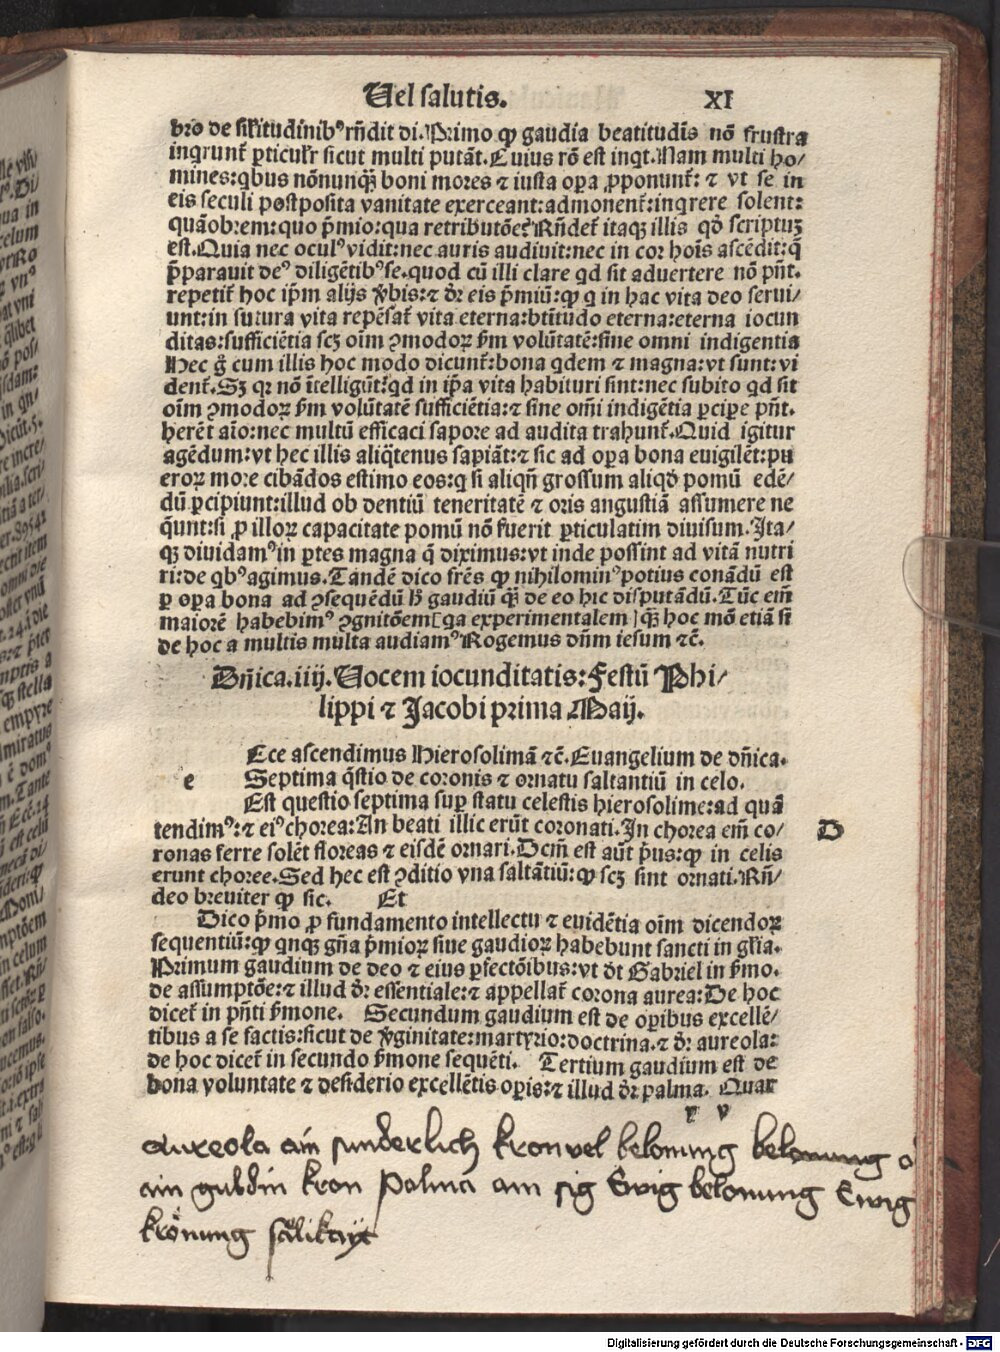 Uel salutis. XI
bro de silitudinibꝰ rñdit di. Primo ꝙ gaudia beatitudĩs nõ frustra
inqrunt᷑ ꝑticulr̃ sicut multi putãt. Cuius rõ est inqt. Nam multi ho/
mines: qbus nõnunqꝫ̃ boni mores ⁊ iusta oꝑa ꝓponunt᷑: ⁊ vt se in
eis seculi postposita vanitate exerceant: admonent᷑: inqrere solent:
quãobrem: quo p̃mio: qua retributõe? Rñdet᷑ itaqꝫ illis qð scriptuꝫ
est. Quia nec oculꝰ vidit: nec auris audiuit: nec in cor hoĩs ascẽdit: q̃
p̃parauit deꝰ diligẽtibꝰ se. quod cũ illi clare qd sit aduertere nõ pñt.
repetit᷑ hoc ip̃m alijs v̾bis: ⁊ dr̃ eis p̃miũ: ꝙ q in hac vita deo serui/
unt: in futura vita repẽsat᷑ vita eterna: btĩtudo eterna: eterna iocun
ditas: sufficiẽtia scꝫ oĩm ꝯmodoꝝ ẜm volũtatẽ: sine omni indigentia
Hec g̊ cum illis hoc modo dicunt᷑: bona qdem ⁊ magna: vt sunt: vi
dent᷑. Sꝫ qꝛ nõ ĩtelligũt: qd in ip̃a vita habituri sint: nec subito qd sit
oĩm ꝯmodoꝝ ẜm volũtatẽ sufficiẽtia: ⁊ sine oĩm indigẽtia ꝑciꝑe pñt.
herẽt aĩo: nec multũ efficaci sapore ad audita trahunt᷑. Quid igitur
agẽdum: vt hec illis aliq̃tenus sapiãt: ⁊ sic ad oꝑa bona euigilẽt: pu
eroꝝ more cibãdos estimo eos: q si aliqñ grossum aliqð pomũ edẽ/
dũ ꝑcipiunt: illud ob dentiũ teneritatẽ ⁊ oris angustiã assumere ne
q̃unt: si ꝓ illoꝝ capacitate pomũ nõ fuerit ꝑticulatim diuisum. Ita/
qꝫ diuidamꝰ in ꝑtes magna q̃ diximus: vt inde possint ad vitã nutri
ri: de qbꝰ agimus. Tandẽ dico frẽs ꝙ nihilominꝰ potius conãdũ est
ꝑ oꝑa bona ad ꝯsequẽdũ h̾ gaudiũ qꝫ̃ de eo hic disputãdũ. Tũc em̃
maiorẽ habebimꝰ ꝯgnitõem [ga experimentalem] qꝫ̃ hoc mõ etiã si
de hoc a multis multa audiamꝰ Rogemus dñm iesum ⁊c̃.
Dñica. iiij. Uocem iocunditatis: Festũ Phi/
lippi ⁊ Jacobi prima Maij.
Ece ascendimus Hierosolimã ⁊c̃. Euangelium de dñica.
e Septima q̃stio de coronis ⁊ ornatu saltantiũ in celo.
Est questio septima suꝑ statu celestis hierosolime: ad quã
tendimꝰ: ⁊ eiꝰ chorea: An beati illic erũt coronati. In chorea em̃ co/ D
ronas ferre solẽt floreas ⁊ eisdẽ ornari. Dcm̃ est aũt p̃us: ꝙ in celis
erunt choree. Sed hec est ꝯditio vna saltãtiũ: ꝙ scꝫ sint ornati. Rñ/
deo breuiter ꝙ sic. Et
Dico p̃mo ꝓ fundamento intellectu ⁊ euidẽtia oĩm dicendoꝝ
sequentiũ: ꝙ qnqꝫ gña p̃mioꝝ siue gaudioꝝ habebunt sancti in gl̃ia.
Primum gaudium de deo ⁊ eius ꝑfectõibus: vt dt̃ Gabriel in ẜmo.
de assumptõe: ⁊ illud dr̃ essentiale: ⁊ appellat᷑ corona aurea: De hoc
dicet᷑ in pñti ẜmone. Secundum gaudium est de oꝑibus excellẽ/
tibus a se factis: sicut de v̾ginitate: martyrio: doctrina. ⁊ dr̃ aureola:
de hoc dicet᷑ in secundo ẜmone sequẽti. Tertium gaudium est de
bona voluntate ⁊ desiderio excellẽtis oꝑis: ⁊ illud dr̃ palma. Quar
r v
Aureola ain sunderlich kron vel belonung belonung
ain guldin kron Palma ain sig Ewig belonung Ewig
krönung sälikayt
Digitalisierung gefördert durch die Deutsche Forschungsgemeinschaft - DFG